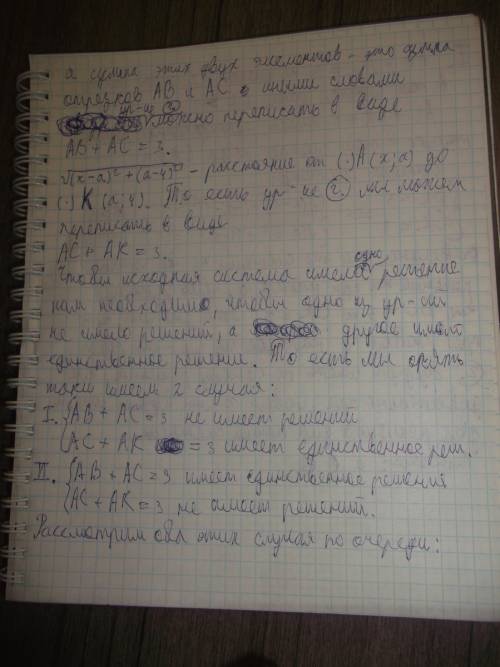 а сумма этих двух элементов - это сумма
отрезков AB и AC. иными словами
ур-ие ② можно переписать в виде
AB + AC = 3.
√(x-a)² + (a-4)² - расстояние от (·) A (x; a) до
(·) K (a; 4). То есть ур-ие ②. мы можем
переписать в виде
AC + AK = 3.
Чтобы исходная система имела одно решение
нам необходимо, чтобы одно из ур-ий
не имело решений, а другое имело
единственное решение. То есть мы опять
таки имеем 2 случая:
I. { AB + AC = 3 не имеет решений
{ AC + AK = 3 имеет единственное реш.
II. { AB + AC = 3 имеет единственное решение
{ AC + AK = 3 не имеет решений.
Рассмотрим оба этих случая по очереди: